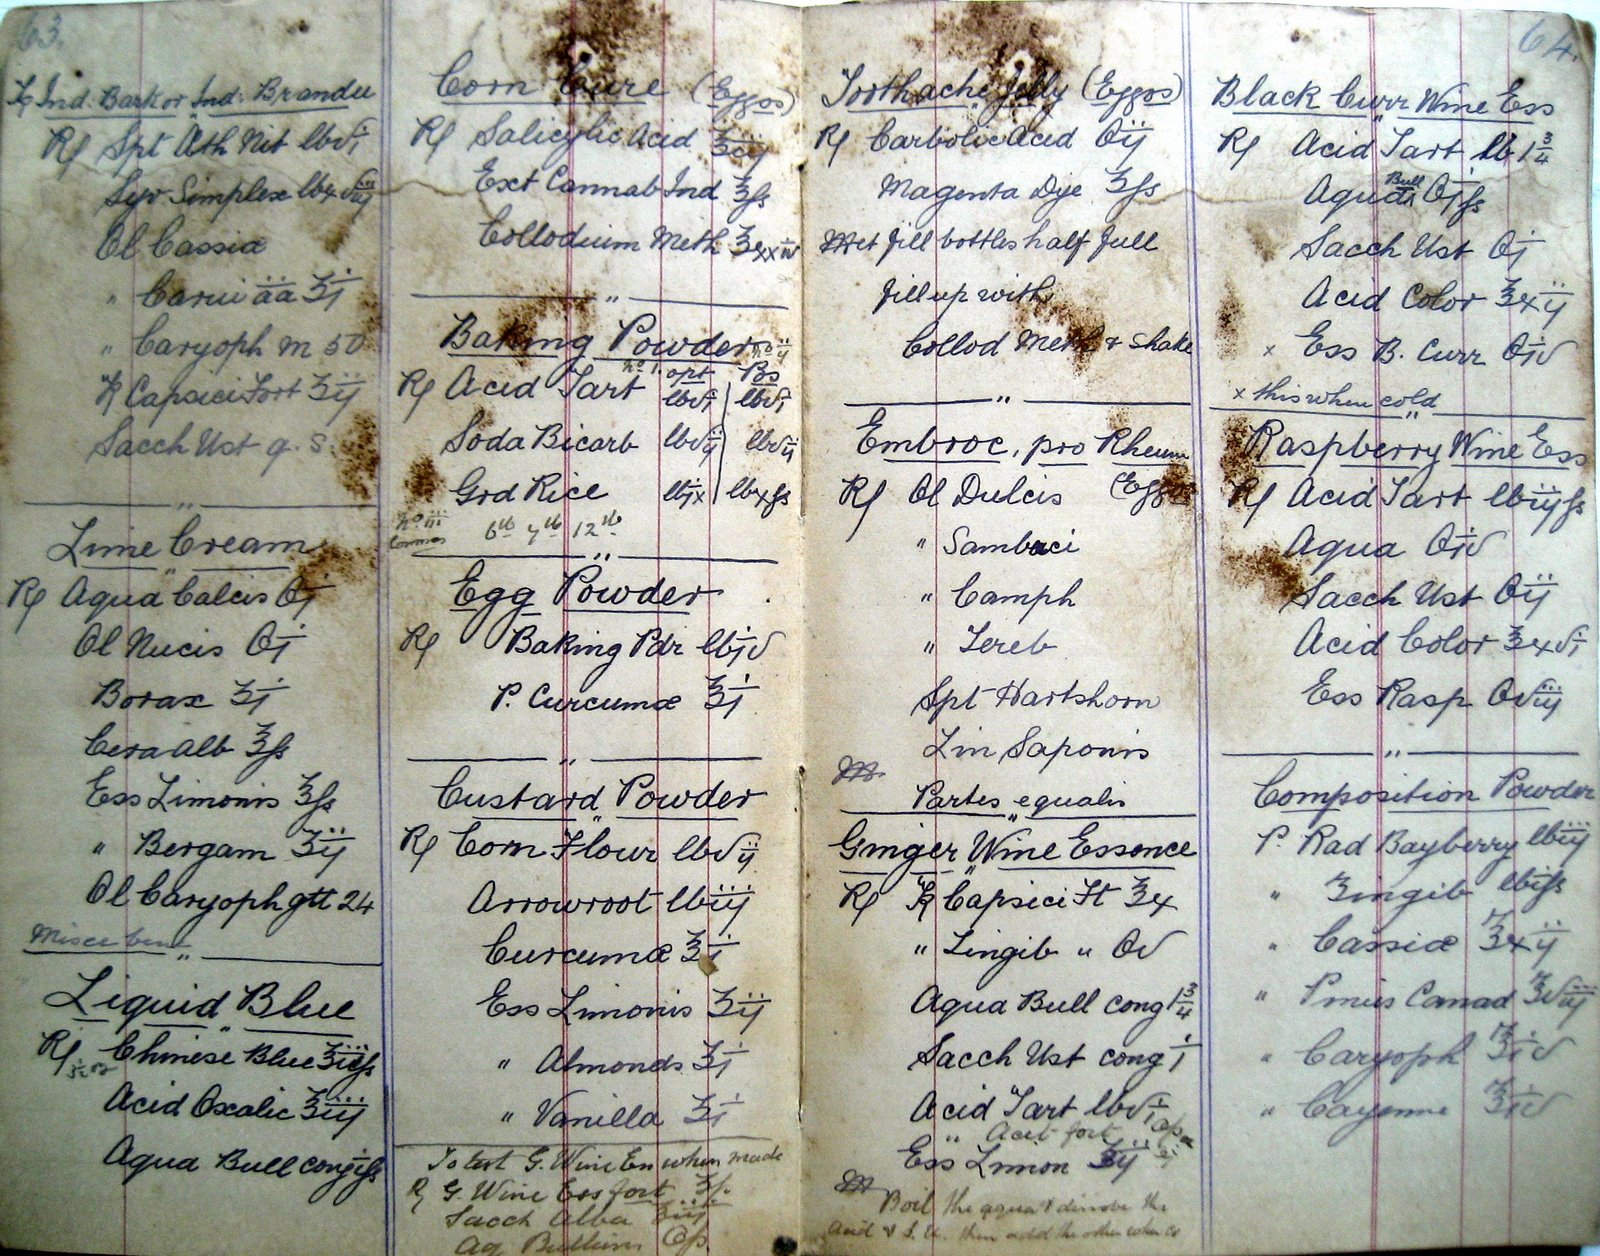 63.
Ind: Bark or Ind: Brandee
Rx Spt Æth Nit lb vi
Syr Simplex lb xviij
Ol Cassia
" Carui āā ℥j
" Caryoph m 50
Tr Capsici Fort ℥ij
Sacch Ust q. s.
Lime Cream
Rx Aqua Calcis Oj
Ol Nucis Oj
Borax ℥j
Cera Alb ℥ss
Ess Limonis ℥ss
" Bergam ℥ij
Ol Caryoph gtt 24
Misce bene
Liquid Blue
Rx Chinese Blue ℥iiiss
Acid Oxalic ℥iij
Aqua Bull cong iss
Corn Cure (Eggos)
Rx Salicylic Acid
Ext Cannab Ind ℥ss
Collodium Meth ℥xxiv
Baking Powder No ij
No 1. opt Bs
Rx Acid Tart lb vi lb vi
Soda Bicarb lb vij lb vij
Grd Rice lb ix lb xss
No iii 6th 7th 12th
Common
Egg Powder
Rx Baking Pdr lb iv
P. Curcumæ ℥j
Custard Powder
Rx Corn Flour lb vij
Arrowroot lb iij
Curcumæ ℥j
Ess Limonis ℥ij
" Almonds ℥j
" Vanilla ℥j
To test G. Wine Ess when made
Rx G. Wine Ess fort
Sacch Alba
Aq Bulliens
64.
Toothache Jelly (Eggos)
Rx Carbolic Acid Oij
Magenta Dye ℥ss
Mft fill bottles half full
fill up with
Collod Meth & Shake
Embroc. pro Rheum
Rx Ol Dulcis
" Sambuci
" Camph
" Tereb
Spt Hartshorn
Lin Saponis
M
Partes equalis
Ginger Wine Essence
Rx Tr Capsici Ft ℥x
" Zingib " Ov
Aqua Bull cong 1 3/4
Sacch Ust cong i
Acid Tart lb vi
" Acet fort
Ess Limon ℥ij
M
Boil the aqua & dissolve the
Acid & S. U. then add the other when
Black Curr Wine Ess
Rx Acid Tart lb 1 3/4
Aqua Bull Ojss
Sacch Ust Oj
Acid Color ℥xij
x Ess B. Curr Oiv
x this when cold
Raspberry Wine Ess
Rx Acid Tart lb ijss
Aqua Oiv
Sacch Ust Oij
Acid Color ℥xvi
Ess Rasp Oviij
Composition Powder
P. Rad Bayberry lb iij
" Zingib lb iss
" Cassiæ ℥xij
" Pinus Canad ℥viij
" Caryoph ℥iv
" Cayenne ℥iv